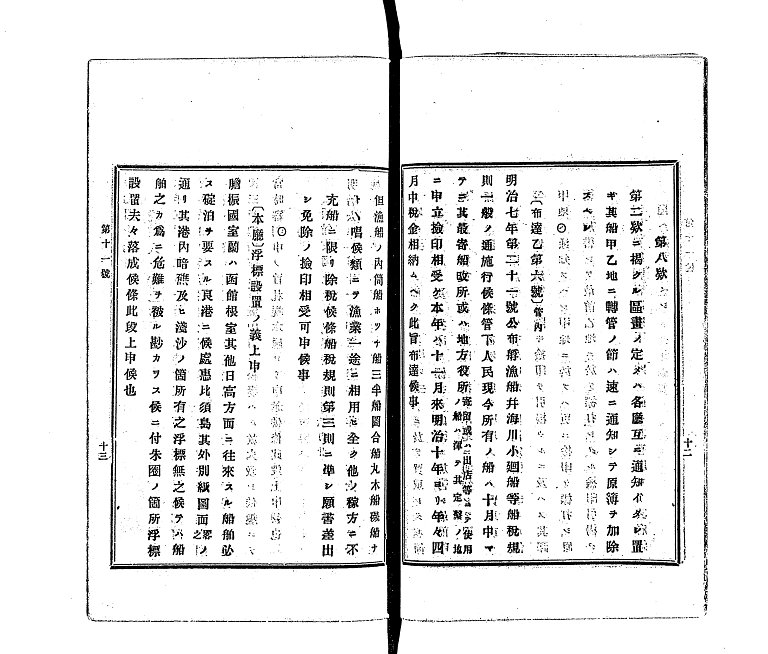 第八欵
第二欵ニ揭クル區畫ノ定釆ハ各廳互ニ通知イタシ置
キ其船甲乙地ニ轉管ノ節ハ速ニ通知シテ原簿ヲ加除
スヘシ
〔布達乙第六號〕管內
明治七年第二十一號公布艀漁船幷海川小廻船等船稅規
則一般ノ通施行候條管下人民現今所有ノ船ハ十月中マ
テニ其最寄船改所或ハ地方役所ヘ
ニ申立撿印相受ケ本年ハ十二月來明治十年ヨリ年々四
月中稅金相納ムヘク此旨布達候事
十二
但漁船ノ內筒船ホツチ船三半船圖合船丸木船磯船ナ
唱候類ニテ漁業一途ニ相用ヒ全ク他ノ稼方ニ不
充船ニ限リ除稅候條船稅規則第三則ニ準シ願書差出
シ免除ノ撿印相受可申候事
〇
〔本廳〕浮標設置ノ義上申
膽振國室蘭ハ函館根室其他日高方面ニ往來スル船舶必
ス碇泊ヲ要スル良港ニ候處惠比須島其外別紙圖面ノ
通リ其港內暗礁及ヒ淺沙ノ箇所有之浮標無之候テハ船
舶之カ爲ニ危難ヲ被ル尠カラス候ニ付朱圈ノ箇所浮標
設置夫々落成候條此段上申候也
第十一號
十三